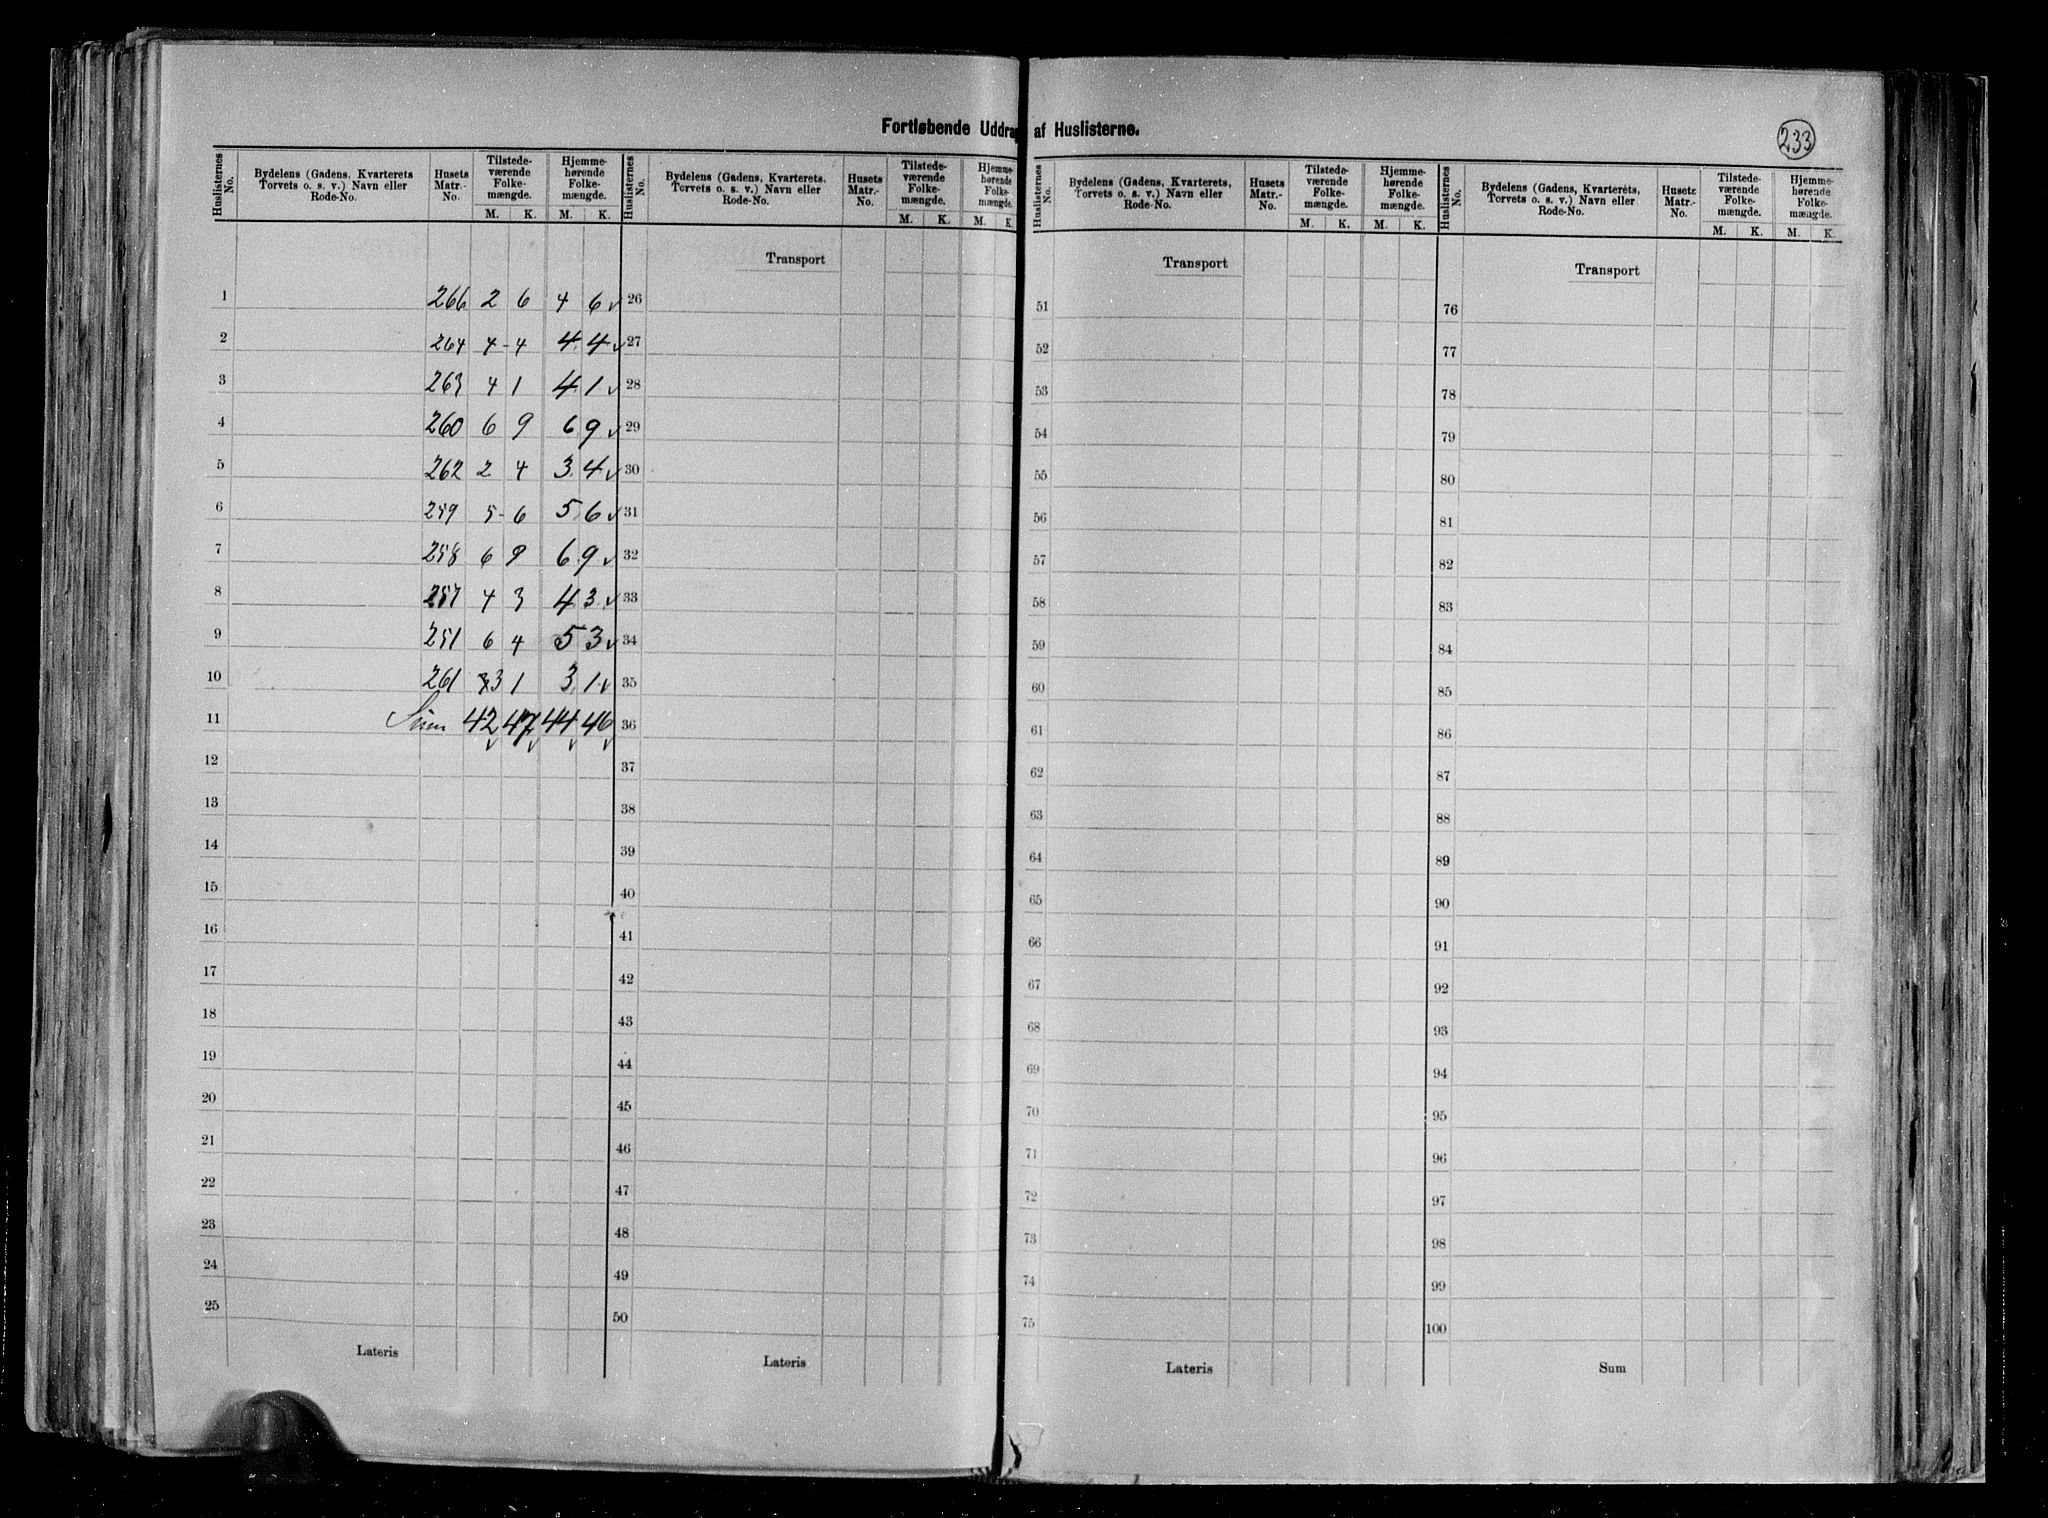 Fortløbende Uddrag af Huslisterne.
233
Huslisternes No.
Bydelens (Gadens, Kvarterets Torvets o. s. v.) Navn eller Rode-No.
Husets Matr.-No.
Tilstedeværende Folkemængde. M. K.
Hjemmehørende Folkemængde. M. K.
1 266 2 6 4 6 ✓
2 264 4 - 4 4 4 ✓
3 263 4 1 4 1 ✓
4 260 6 9 6 9 ✓
5 262 2 4 3 4 ✓
6 259 5 - 6 5 6 ✓
7 258 6 9 6 9 ✓
8 257 4 3 4 3 ✓
9 251 6 4 5 3 ✓
10 261 3 1 3 1 ✓
11 Sum 42 47 44 46
✓ ✓ ✓ ✓
12
13
14
15
16
17
18
19
20
21
22
23
24
25
Lateris
Huslisternes No.
Bydelens (Gadens, Kvarterets, Torvets o. s. v.) Navn eller Rode-No.
Husets Matr.-No.
Tilstedeværende Folkemængde. M. K.
Hjemmehørende Folkemængde. M. K.
Transport
26
27
28
29
30
31
32
33
34
35
36
37
38
39
40
41
42
43
44
45
46
47
48
49
50
Lateris
Huslisternes No.
Bydelens (Gadens, Kvarterets, Torvets o. s. v.) Navn eller Rode-No.
Husets Matr.-No.
Tilstedeværende Folkemængde. M. K.
Hjemmehørende Folkemængde. M. K.
Transport
51
52
53
54
55
56
57
58
59
60
61
62
63
64
65
66
67
68
69
70
71
72
73
74
75
Lateris
Huslisternes No.
Bydelens (Gadens, Kvarterets, Torvets o. s. v.) Navn eller Rode-No.
Husets Matr.-No.
Tilstedeværende Folkemængde. M. K.
Hjemmehørende Folkemængde. M. K.
Transport
76
77
78
79
80
81
82
83
84
85
86
87
88
89
90
91
92
93
94
95
96
97
98
99
100
Sum